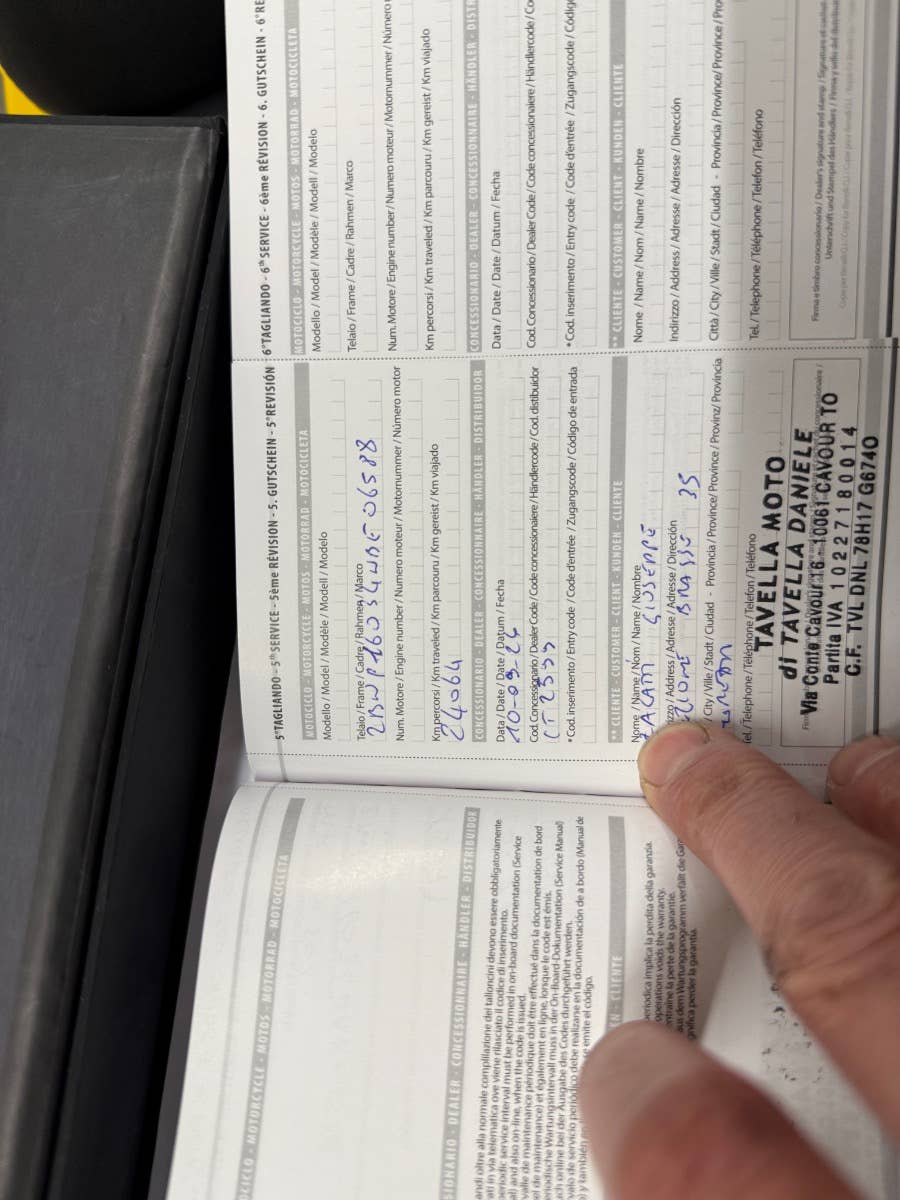 5°TAGLIANDO - 5th SERVICE - 5ème RÉVISION - 5. GUTSCHEIN - 5°REVISIÓN
MOTOCICLO - MOTORCYCLE - MOTOS - MOTORRAD - MOTOCICLETA
Modello / Model / Modèle / Modell / Modelo
Telaio / Frame / Cadre / Rahmen / Marco
Num. Motore / Engine number / Numero moteur / Motornummer / Número motor
Km percorsi / Km traveled / Km parcouru / Km gereist / Km viajado
24064
CONCESSIONARIO - DEALER - CONCESSIONNAIRE - HÄNDLER - DISTRIBUIDOR
Data / Date / Date / Datum / Fecha
10-09-24
Cod. Concessionario / Dealer Code / Code concessionaiere / Händlercode / Cod. distibuidor
* Cod. Inserimento / Entry code / Code d'entrée / Zugangscode / Código de entrada
** CLIENTE - CUSTOMER - CLIENT - KUNDEN - CLIENTE
Nome / Name / Nom / Name / Nombre
GIUSEPPE
rizzo / Address / Adresse / Adresse / Dirección
35
/ City / Ville / Stadt / Ciudad - Provincia / Province / Province / Provinz / Provincia
Tel. / Telephone / Téléphone / Telefon / Teléfono
TAVELLA MOTO
di TAVELLA DANIELE
Via Conte Cavour 16 - 10061 CAVOUR TO
Partita IVA 10227180014
C.F. TVL DNL 78H17 G674O
6°TAGLIANDO - 6th SERVICE - 6ème RÉVISION - 6. GUTSCHEIN - 6°RE
MOTOCICLO - MOTORCYCLE - MOTOS - MOTORRAD - MOTOCICLETA
Modello / Model / Modèle / Modell / Modelo
Telaio / Frame / Cadre / Rahmen / Marco
Num. Motore / Engine number / Numero moteur / Motornummer / Número
Km percorsi / Km traveled / Km parcouru / Km gereist / Km viajado
CONCESSIONARIO - DEALER - CONCESSIONNAIRE - HÄNDLER - DISTR
Data / Date / Date / Datum / Fecha
Cod. Concessionario / Dealer Code / Code concessionaiere / Händlercode / Co
* Cod. Inserimento / Entry code / Code d'entrée / Zugangscode / Códig
** CLIENTE - CUSTOMER - CLIENT - KUNDEN - CLIENTE
Nome / Name / Nom / Name / Nombre
Indirizzo / Address / Adresse / Adresse / Dirección
Città / City / Ville / Stadt / Ciudad - Provincia / Province / Province / Pro
Tel. / Telephone / Téléphone / Telefon / Teléfono
Firma e timbro concessionario / Dealer's signature and stamp /
Unterschrift und Stempel des Händlers /
OCICLO - MOTORCYCLE - MOTOS - MOTORRAD - MOTOCICLETA
SIONARIO - DEALER - CONCESSIONNAIRE - HÄNDLER - DISTRIBUIDOR
andi oltre alla normale compilazione dei talloncini devono essere obbligatoriamente
ati in via telematica ove viene rilasciato il codice di inserimento.
periodic service interval must be performed in on-board documentation (Service
al) and also on-line, when the code is issued.
valle de maintenance périodique doit être effectué dans la documentation de bord
el de maintenance) et également en ligne, lorsque le code est émis.
riodische Wartungsintervall muss in der On-Board-Dokumentation (Service Manual)
ch online bei der Ausgabe des Codes durchgeführt werden.
valo de servicio periódico debe realizarse en la documentación de a bordo (Manual de
) y también
se emite el código.
EN - CLIENTE
periodica implica la perdita della garanzia.
operations voids the warranty.
entraîne la perte de la garantie.
aus dem Wartungsprogramm verfällt die Gar
gnifica perder la garantía.